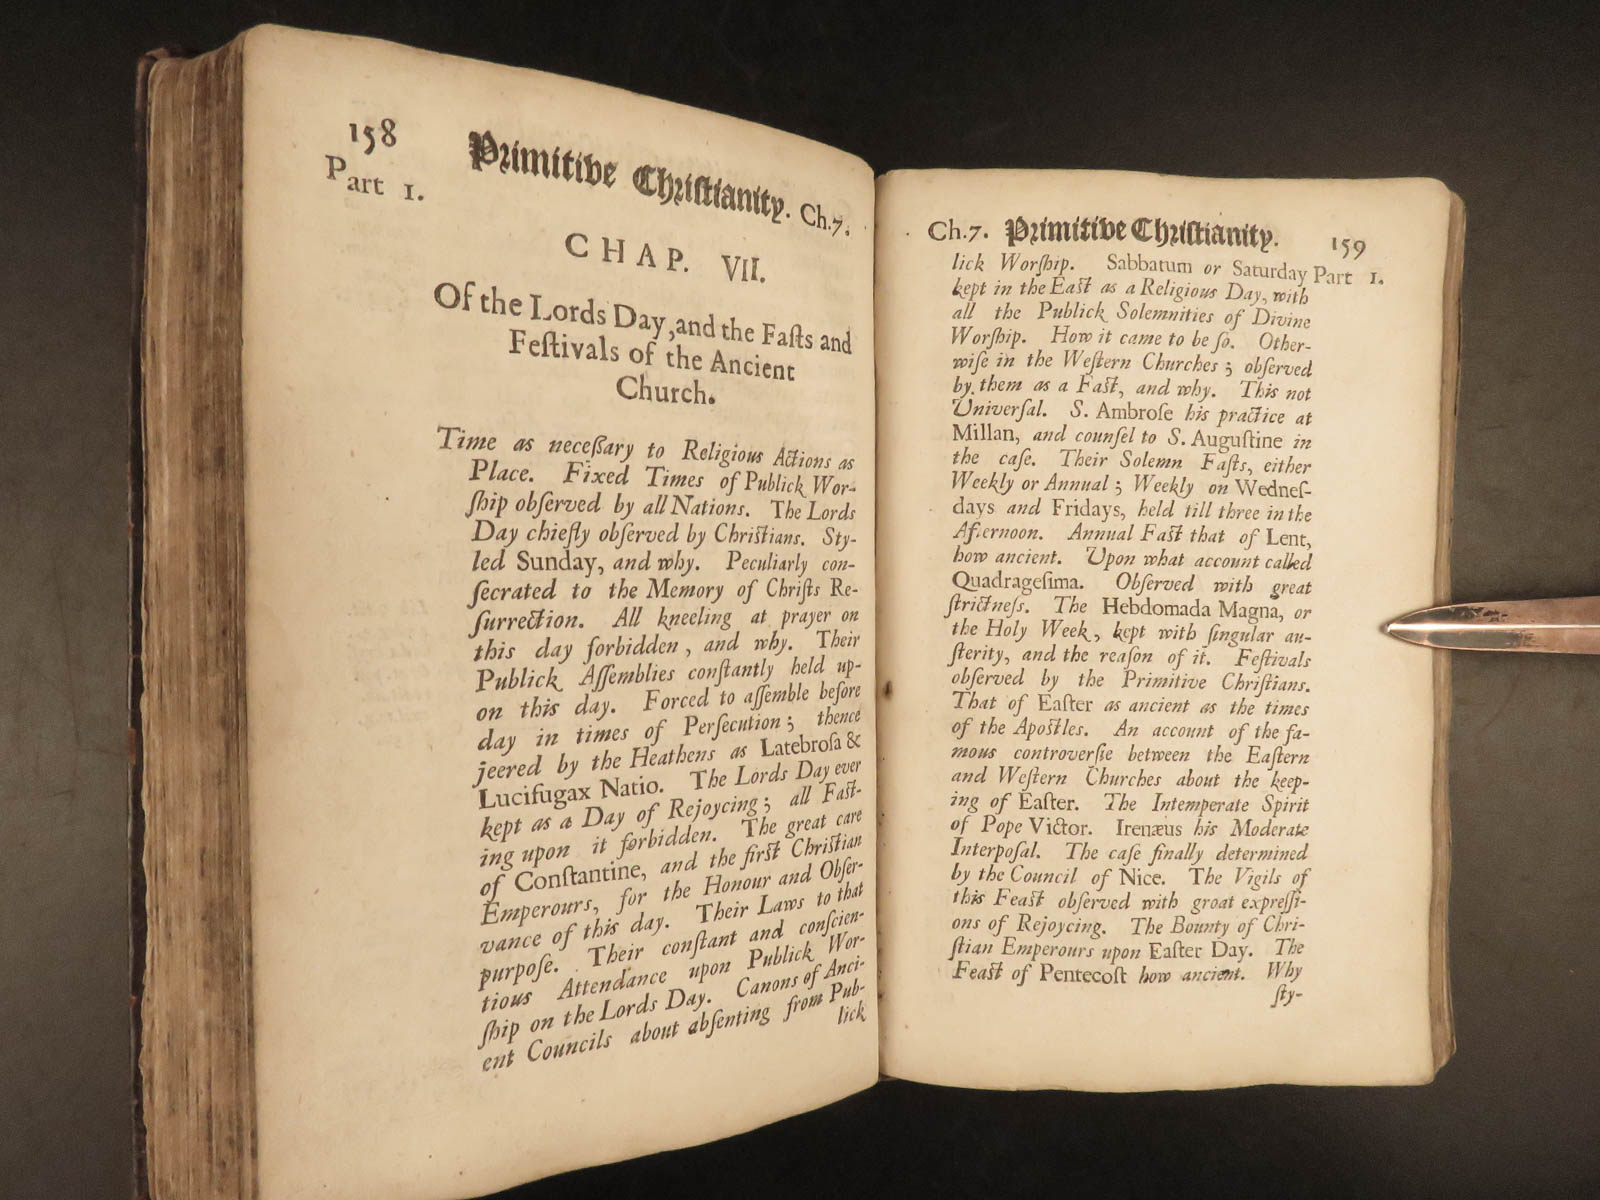 158 Primitive Christianity. Ch.7.
Part 1.
CHAP. VII.
Of the Lords Day, and the Faſts and
Feſtivals of the Ancient
Church.
Time as neceßary to Religious Actions as
Place. Fixed Times of Publick Wor-
ſhip obſerved by all Nations. The Lords
Day chiefly obſerved by Chriſtians. Sty-
led Sunday, and why. Peculiarly con-
ſecrated to the Memory of Chriſts Re-
ſurrection. All kneeling at prayer on
this day forbidden, and why. Their
Publick Aſſemblies conſtantly held up-
on this day. Forced to aſſemble before
day in times of Perſecution; thence
jeered by the Heathens as Latebroſa &
Lucifugax Natio. The Lords Day ever
kept as a Day of Rejoycing; all Faſt-
ing upon it forbidden. The great care
of Conſtantine, and the firſt Chriſtian
Emperours, for the Honour and Obſer-
vance of this day. Their Laws to that
purpoſe. Their conſtant and conſcien-
tious Attendance upon Publick Wor-
ſhip on the Lords Day. Canons of Anci-
ent Councils about abſenting from Pub-
lick
Ch.7. Primitive Chriſtianity. 159
lick Worſhip. Sabbatum or Saturday Part 1.
kept in the Eaſt as a Religious Day, with
all the Publick Solemnities of Divine
Worſhip. How it came to be ſo. Other-
wiſe in the Weſtern Churches; obſerved
by them as a Faſt, and why. This not
Univerſal. S. Ambroſe his practice at
Millan, and counſel to S. Auguſtine in
the caſe. Their Solemn Faſts, either
Weekly or Annual; Weekly on Wedneſ-
days and Fridays, held till three in the
Afternoon. Annual Faſt that of Lent,
how ancient. Upon what account called
Quadrageſima. Obſerved with great
ſtrictneſs. The Hebdomada Magna, or
the Holy Week, kept with ſingular au-
ſterity, and the reaſon of it. Feſtivals
obſerved by the Primitive Chriſtians.
That of Eaſter as ancient as the times
of the Apoſtles. An account of the fa-
mous controverſie between the Eaſtern
and Weſtern Churches about the keep-
ing of Eaſter. The Intemperate Spirit
of Pope Victor. Irenæus his Moderate
Interpoſal. The caſe finally determined
by the Council of Nice. The Vigils of
this Feaſt obſerved with groat expreſſi-
ons of Rejoycing. The Bounty of Chri-
ſtian Emperours upon Eaſter Day. The
Feaſt of Pentecoſt how ancient. Why
ſty-